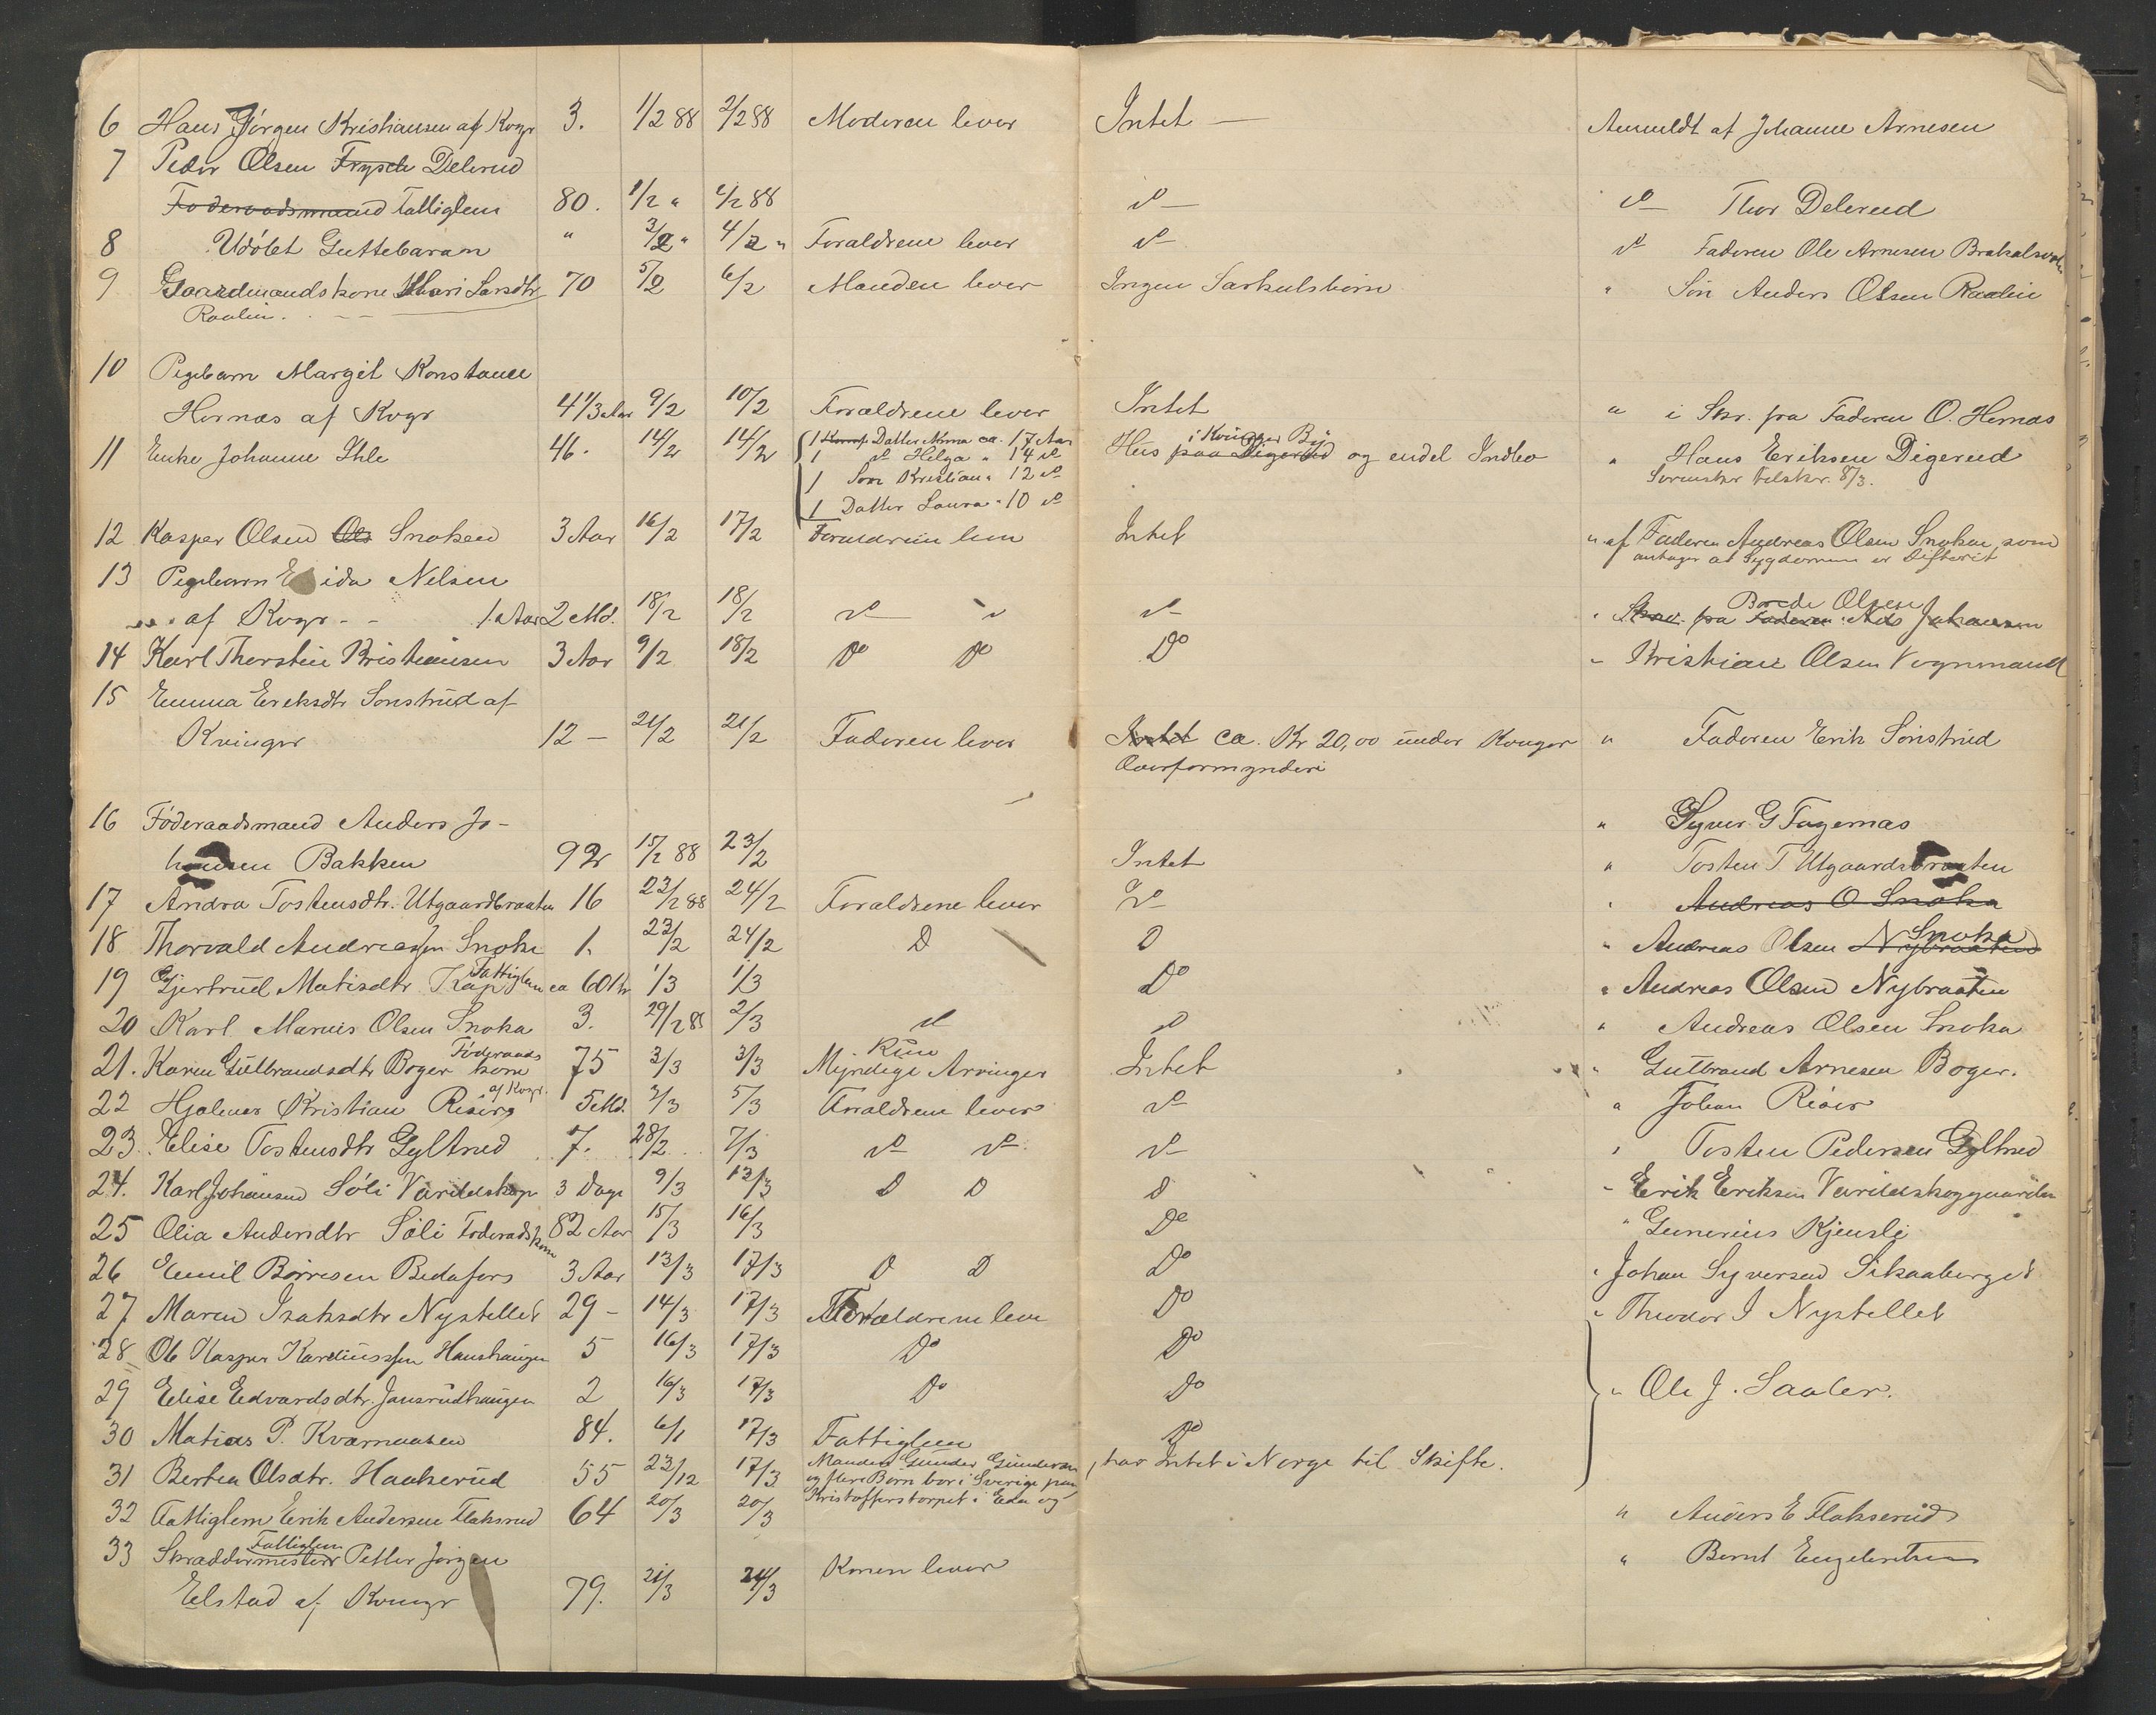 6 Hans Jörgen Kristiansen af Kvgr 3. 1/2 88 2/2 88 Moderen lever Intet — Anmeldt af Johanne Arnesen
7 Peder Olsen Frysch Delerud
Föderaadsmand Fattiglem 80. 1/2 " 4/2 88 do do Thor Delerud
8 Udöbt Guttebarn " 3/2 " 4/2 " Forældrene lever do do Faderen Ole Arnesen
9 Gaardmandskone Mari Larsdtr 70 5/2 6/2 Manden lever Ingen Særkulsbörn " Sön Anders Olsen Raalin
Raalin.
10 Pigebarn Margit Konstance
Hernæs af Kvgr 4 1/3 Aar 9/2 10/2 Forældrene lever Intet " i Skr. fra Faderen O. Hernæs
11 Enke Johanne Ihle 46. 14/2 14/2 1 Datter Anna ca. 17 Aar i Kvinger By
1 do Helga " 14 do Hus paa Digerud og endel Indbo " Hans Eriksen Digerud
1 Sön Kristian " 12 do Sorenskr tilskr. 8/3.
1 Datter Laura " 10 do
12 Kasper Olsen Ols Snoken 3 Aar 16/2 17/2 Forældrene leve Intet " af Faderen Andreas Olsen Snoken, som
antager at Sygdommen er Difterit
13 Pigebarn E ida Nelsen
af Kvgr - - 1 Aar 2 Md. 18/2 18/2 do do do " Brede Olsen
Skr. fra Faderen Nils Johansen
14 Karl Thorstein Kristiansen 3 Aar 9/2 18/2 Do Do Do " Kristian Olsen Vognmand
15 Emma Eriksdtr Sonstrud af
Kvinger 12 — 21/2 21/2 Faderen lever Intet ca. Kr 20,00 under Konger " Faderen Erik Sönstrud
Overformynderi
16 Föderaadsmand Anders Jo-
hansen Bakken 92 15/2 88 23/2 Intet " Syver G Fagernæs
17 Andra Tostensdtr. Utgaardbraaten 16 23/2 88 24/2 Forældrene lever do " Tosten T. Utgaardsbraaten
" Andreas O Snoka
18 Thorvald Andreassen Snoka 1. 23/2 24/2 D D " Andreas Olsen Nybraaten Snoka
19 Gjertrud Matisdtr Kap Fattiglem ca 60 Aar 1/3 1/3 Do " Andreas Olsen Nybraaten
20 Karl Marius Olsen Snoka 3. 29/2 88 2/3 do do " Andreas Olsen Snoka
21. Karen Gulbrandsdtr Boger Föderaads kone 75 3/3 3/3 Kun Myndige Arvinger Intet " Gulbrand Arnesen Boger.
22 Hjalmar Kristian Riser af Kvgr. 5 Md. 2/3 5/3 Forældrene lever do " Johan Riser
23. Elise Tostensdtr Gyltrud 7. 28/2 7/3 do do do " Tosten Pedersen Gyltrud
24. Karl Johansen Söli Varildskog 3 Dage 9/3 13/3 D D d " Erik Eriksen Varildskoggaarden
25 Olia Andersdtr Söli Föderaadskone 82 Aar 15/3 16/3 Do " Gunerius Kjensli
26 Emil Börresen Bedafors 3 Aar 13/3 17/3 D D Do " Johan Syversen Sikaaberget
27 Maren Isaksdtr Nystellet 29 - 14/3 17/3 Forældrene leve Do " Theodor I Nystellet
28 Ole Kasper Kareliussen Haushaugen 5 16/3 17/3 Do Do
29 Elise Edvardsdtr. Jansrudhaugen 2 16/3 17/3 Do Do " Ole J. Saaler.
30 Matias P. Kværnaasen 84. 6/1 17/3 Fattiglem Do
31 Berthea Olsdtr. Haakerud 55 23/12 17/3 Manden Gunder Gundersen
og flere Börn bor i Sverige paa
Kristofferstorpet i Eda og , har Intet i Norge til Skifte.
32 Fattiglem Erik Andersen Flakserud 64 20/3 20/3 " Anders E Flakserud
33 Skræddermester Fattiglem Petter Jörgen
Elstad af Kvinger 79. 21/3 24/3 Konen lever " Bernt Engebretsen